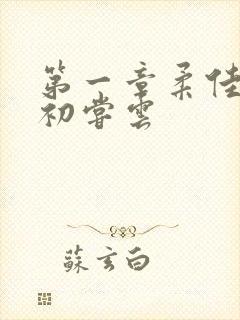 第一章柔佳
初尝云
蘇玄白